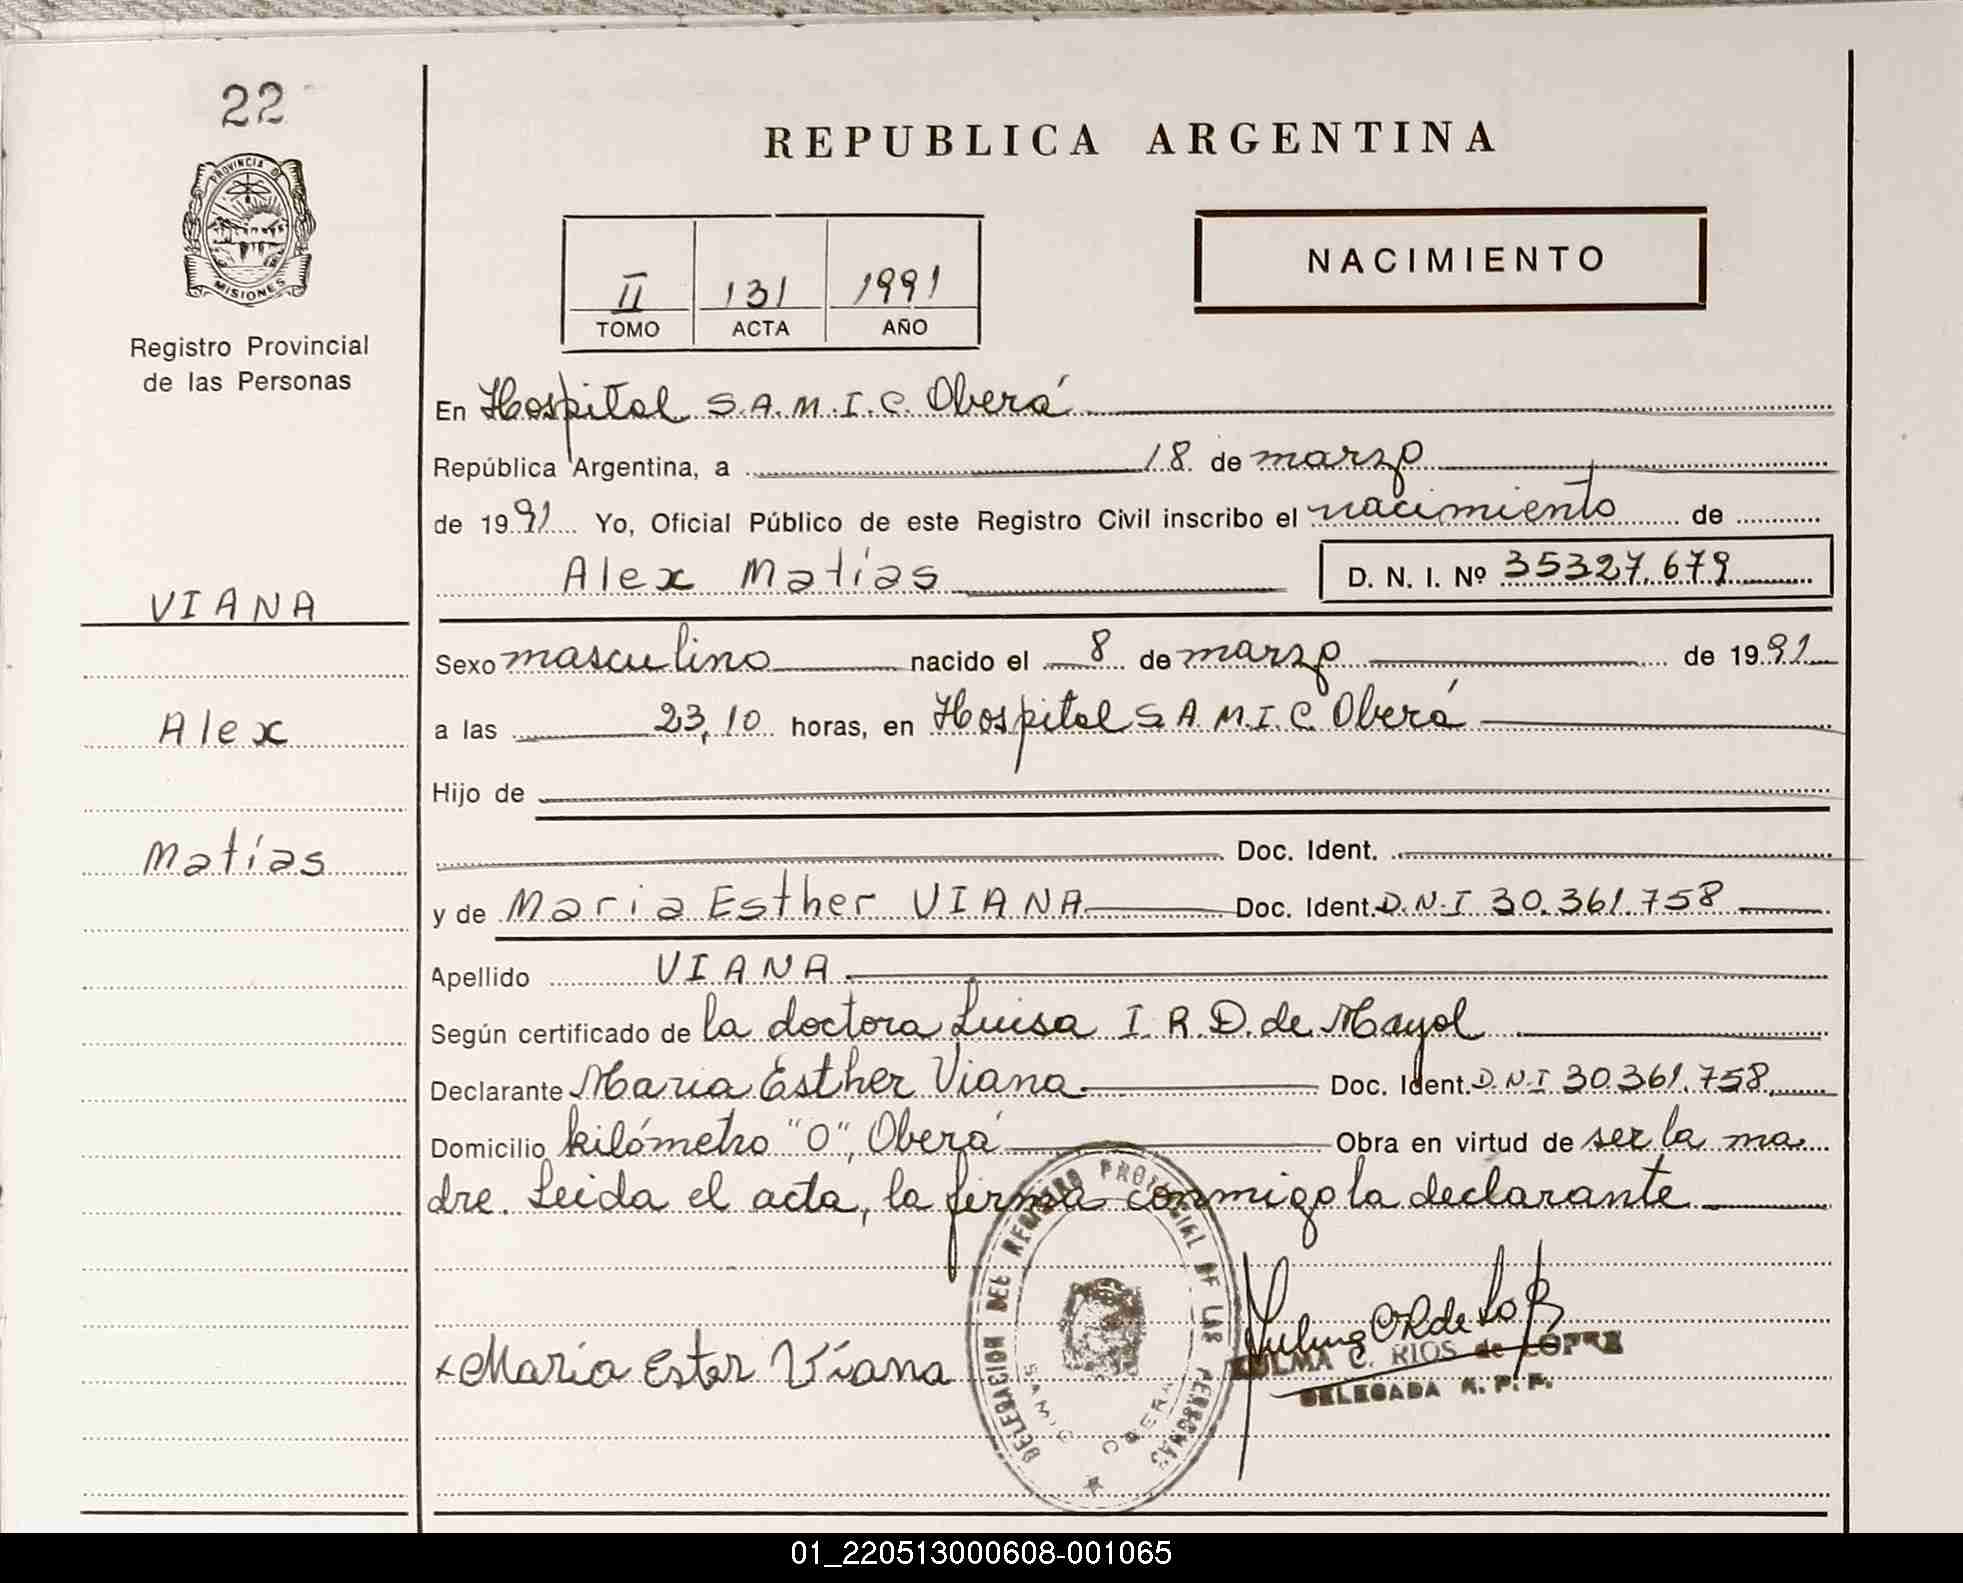 22
PROVINCIA DE
MISIONES
Registro Provincial
de las Personas
VIANA
Alex
Matías
REPUBLICA ARGENTINA
II 131 1991
TOMO ACTA AÑO
NACIMIENTO
En Hospital S.A.M.I.C. Oberá
República Argentina, a 18 de marzo
de 1991 Yo, Oficial Público de este Registro Civil inscribo el nacimiento de
Alex Matías D. N. I. Nº 35327.679
Sexo masculino nacido el 8 de marzo de 1991
a las 23,10 horas, en Hospital S.A.M.I.C. Oberá
Hijo de
Doc. Ident.
y de Maria Esther VIANA Doc. Ident. D.N.I 30.361.758
Apellido VIANA
Según certificado de la doctora Luisa I. R. D. de Mayol
Declarante Maria Esther Viana Doc. Ident. D.N.I 30.361.758
Domicilio kilómetro "0", Oberá Obra en virtud de ser la ma
dre. Leida el acta, la firma conmigo la declarante
x Maria Ester Viana
DELEGACION DEL REGISTRO PROVINCIAL DE LAS PERSONAS
SAMIC OBERA
ZULMA C. RIOS de LOPEZ
DELEGADA R. P. P.
01_220513000608-001065